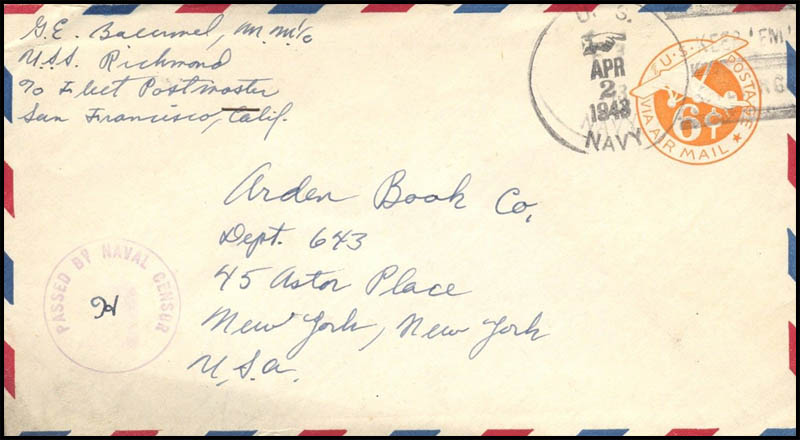 G.E. Bacumel, M.M.1/c
U.S.S. Richmond
c/o Fleet Postmaster
San Francisco, Calif.
U. S.
APR
2
1943
NAVY
U·S·POSTAGE
6¢
VIA AIR MAIL
Arden Book Co,
Dept. 643
45 Astor Place
New York, New York
U.S.a.
PASSED BY NAVAL CENSOR